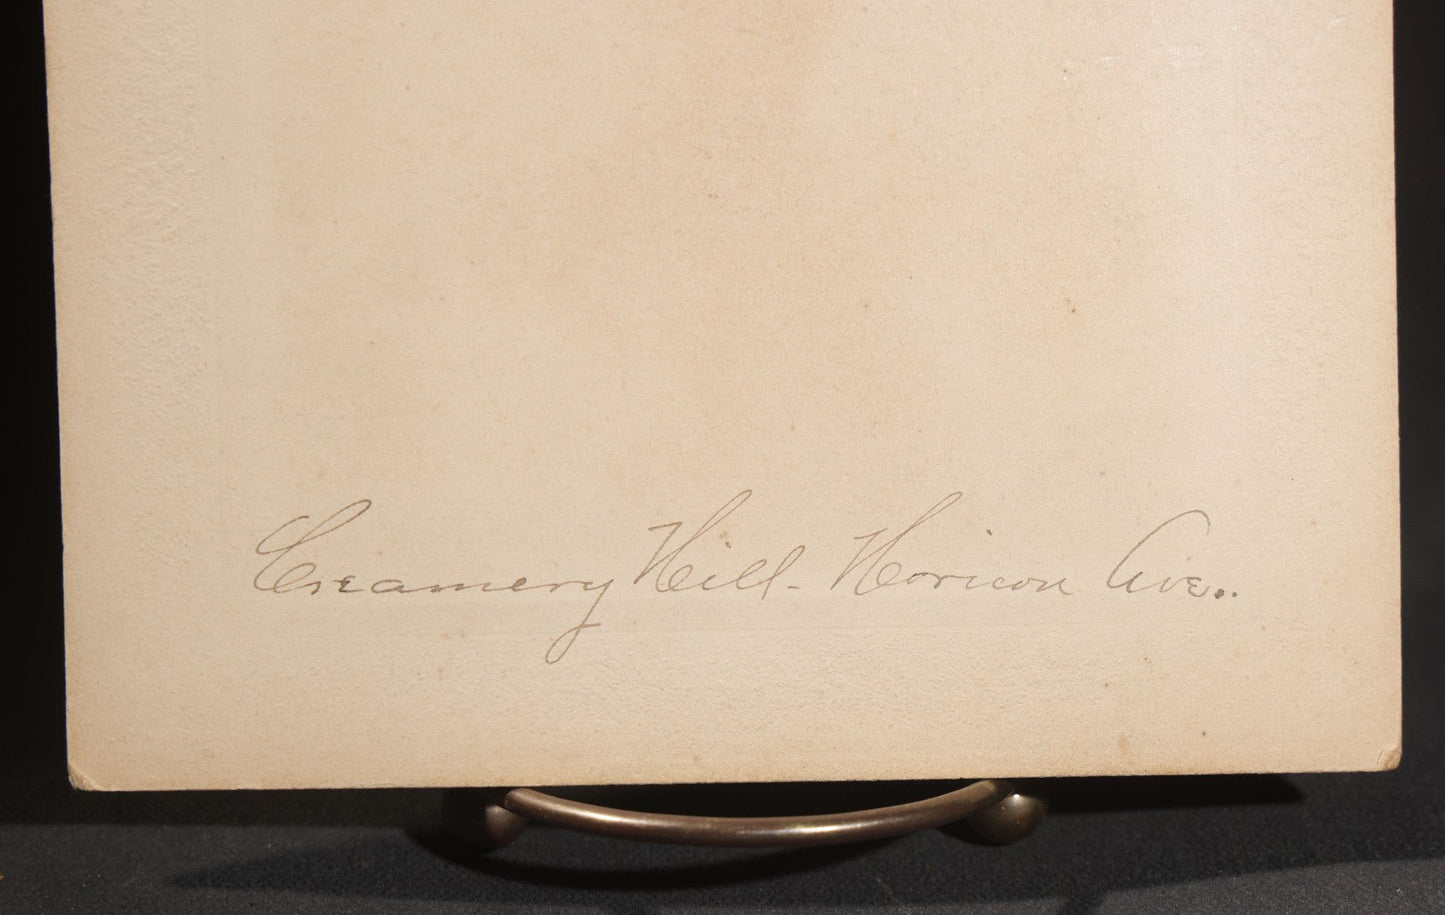 Creamery Hill - Horicon Ave..